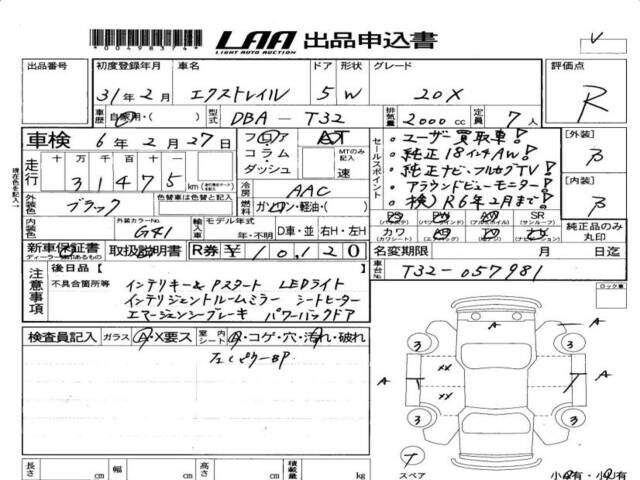 *00498374*
LAA 出品申込書
LIGHT AUTO AUCTION
出品番号 初度登録年月 車名 ドア 形状 グレード 評価点
31年2月 エクストレイル 5 W 20X R
車歴 自家用・( ) 型式 DBA-T32 排気量 2000cc 定員 7人
車検 6年2月27日 フロア AT
コラム MTのみ記入
ダッシュ 速
セールスポイント
・ユーザー買取車!
・純正18インチAW!
・純正ナビ・フルセグTV!
・アラウンドビューモニター!
・検)R6年2月まで!
[外装] B
[内装] B
現在色を記入→
走行 十万 万 千 百 十 一
31475km
冷房 AAC
外装色 ブラック 色替車は色替と記入 燃料 ガソリン・軽油・( )
内装色 外装カラーNo. G41 輸入車 モデル年式 年・不明 D車・並 右H・左H
PS PW AW SR
(パワステ) (サンルーフ)
カワ
(カワシート) (エアコン)
純正品のみ丸印
新車保証書 取扱説明書 R券 ¥10,120 名変期限 月 日迄
ディーラー継印あるもの
車台No. T32-057981
ロック量
注意事項 後日品[ ]
不具合箇所等 インテリキー&Pスタート LEDライト
インテリジェントルームミラー シートヒーター
エマージェンシーブレーキ パワーバックドア
検査員記入 ガラス A・X要ス 室内シート A・コゲ・穴・汚れ・破れ
A
3 3
A XX A
XX
3 3
スペア
長さ cm 幅 cm 高さ cm 積載量 kg